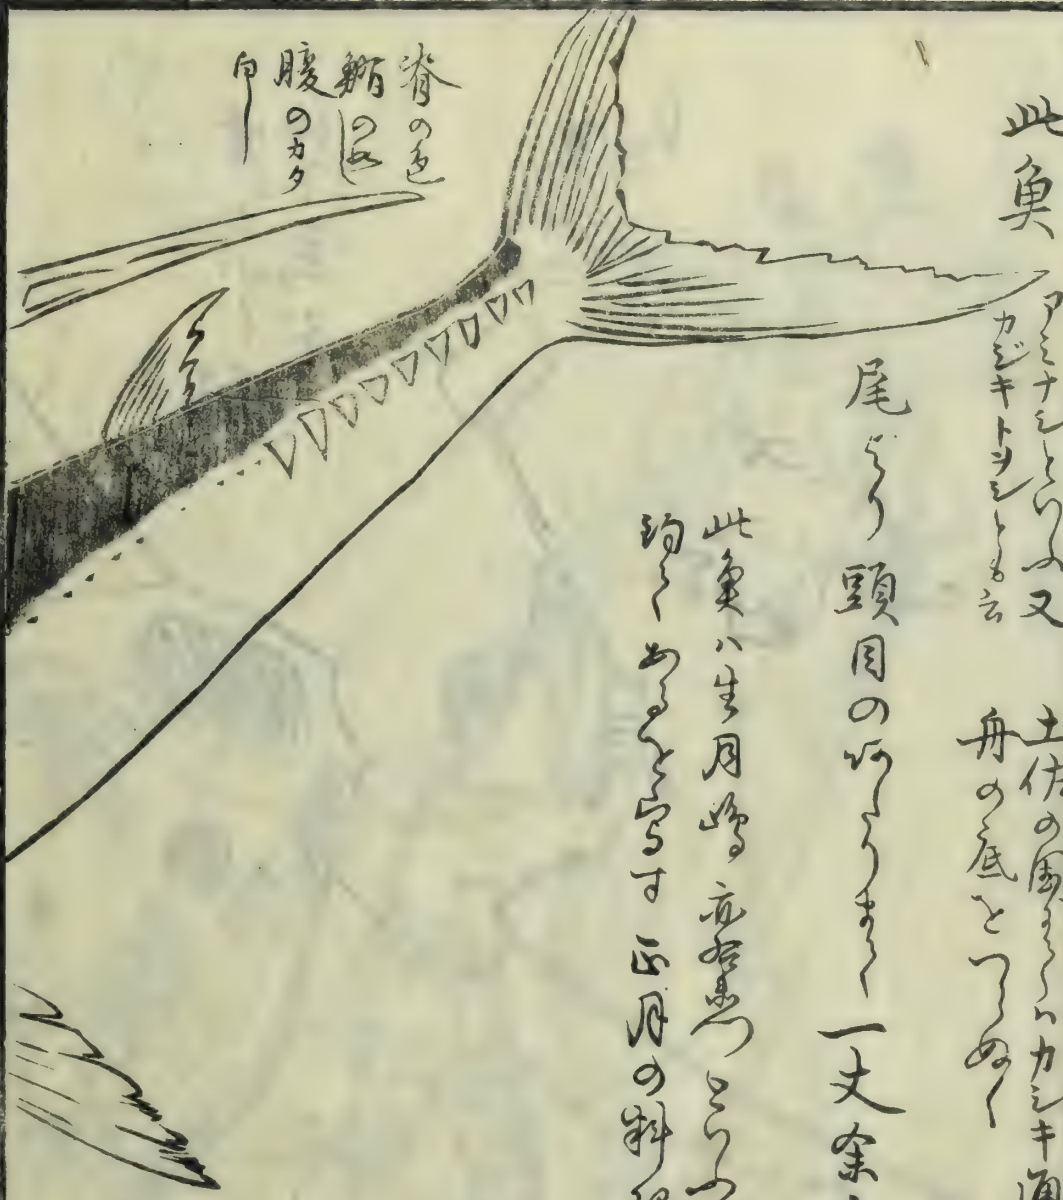 此魚
アミナシといふ又
カジキトヲシとも云
土佐の国にてハカジキ通
舟の底をつらぬく
尾より頭目の辺りまて一丈余
此魚ハ生月嶋 といふ
あるを写す 正月の料
脊の色
鯔の如し
腹のカタ
白し